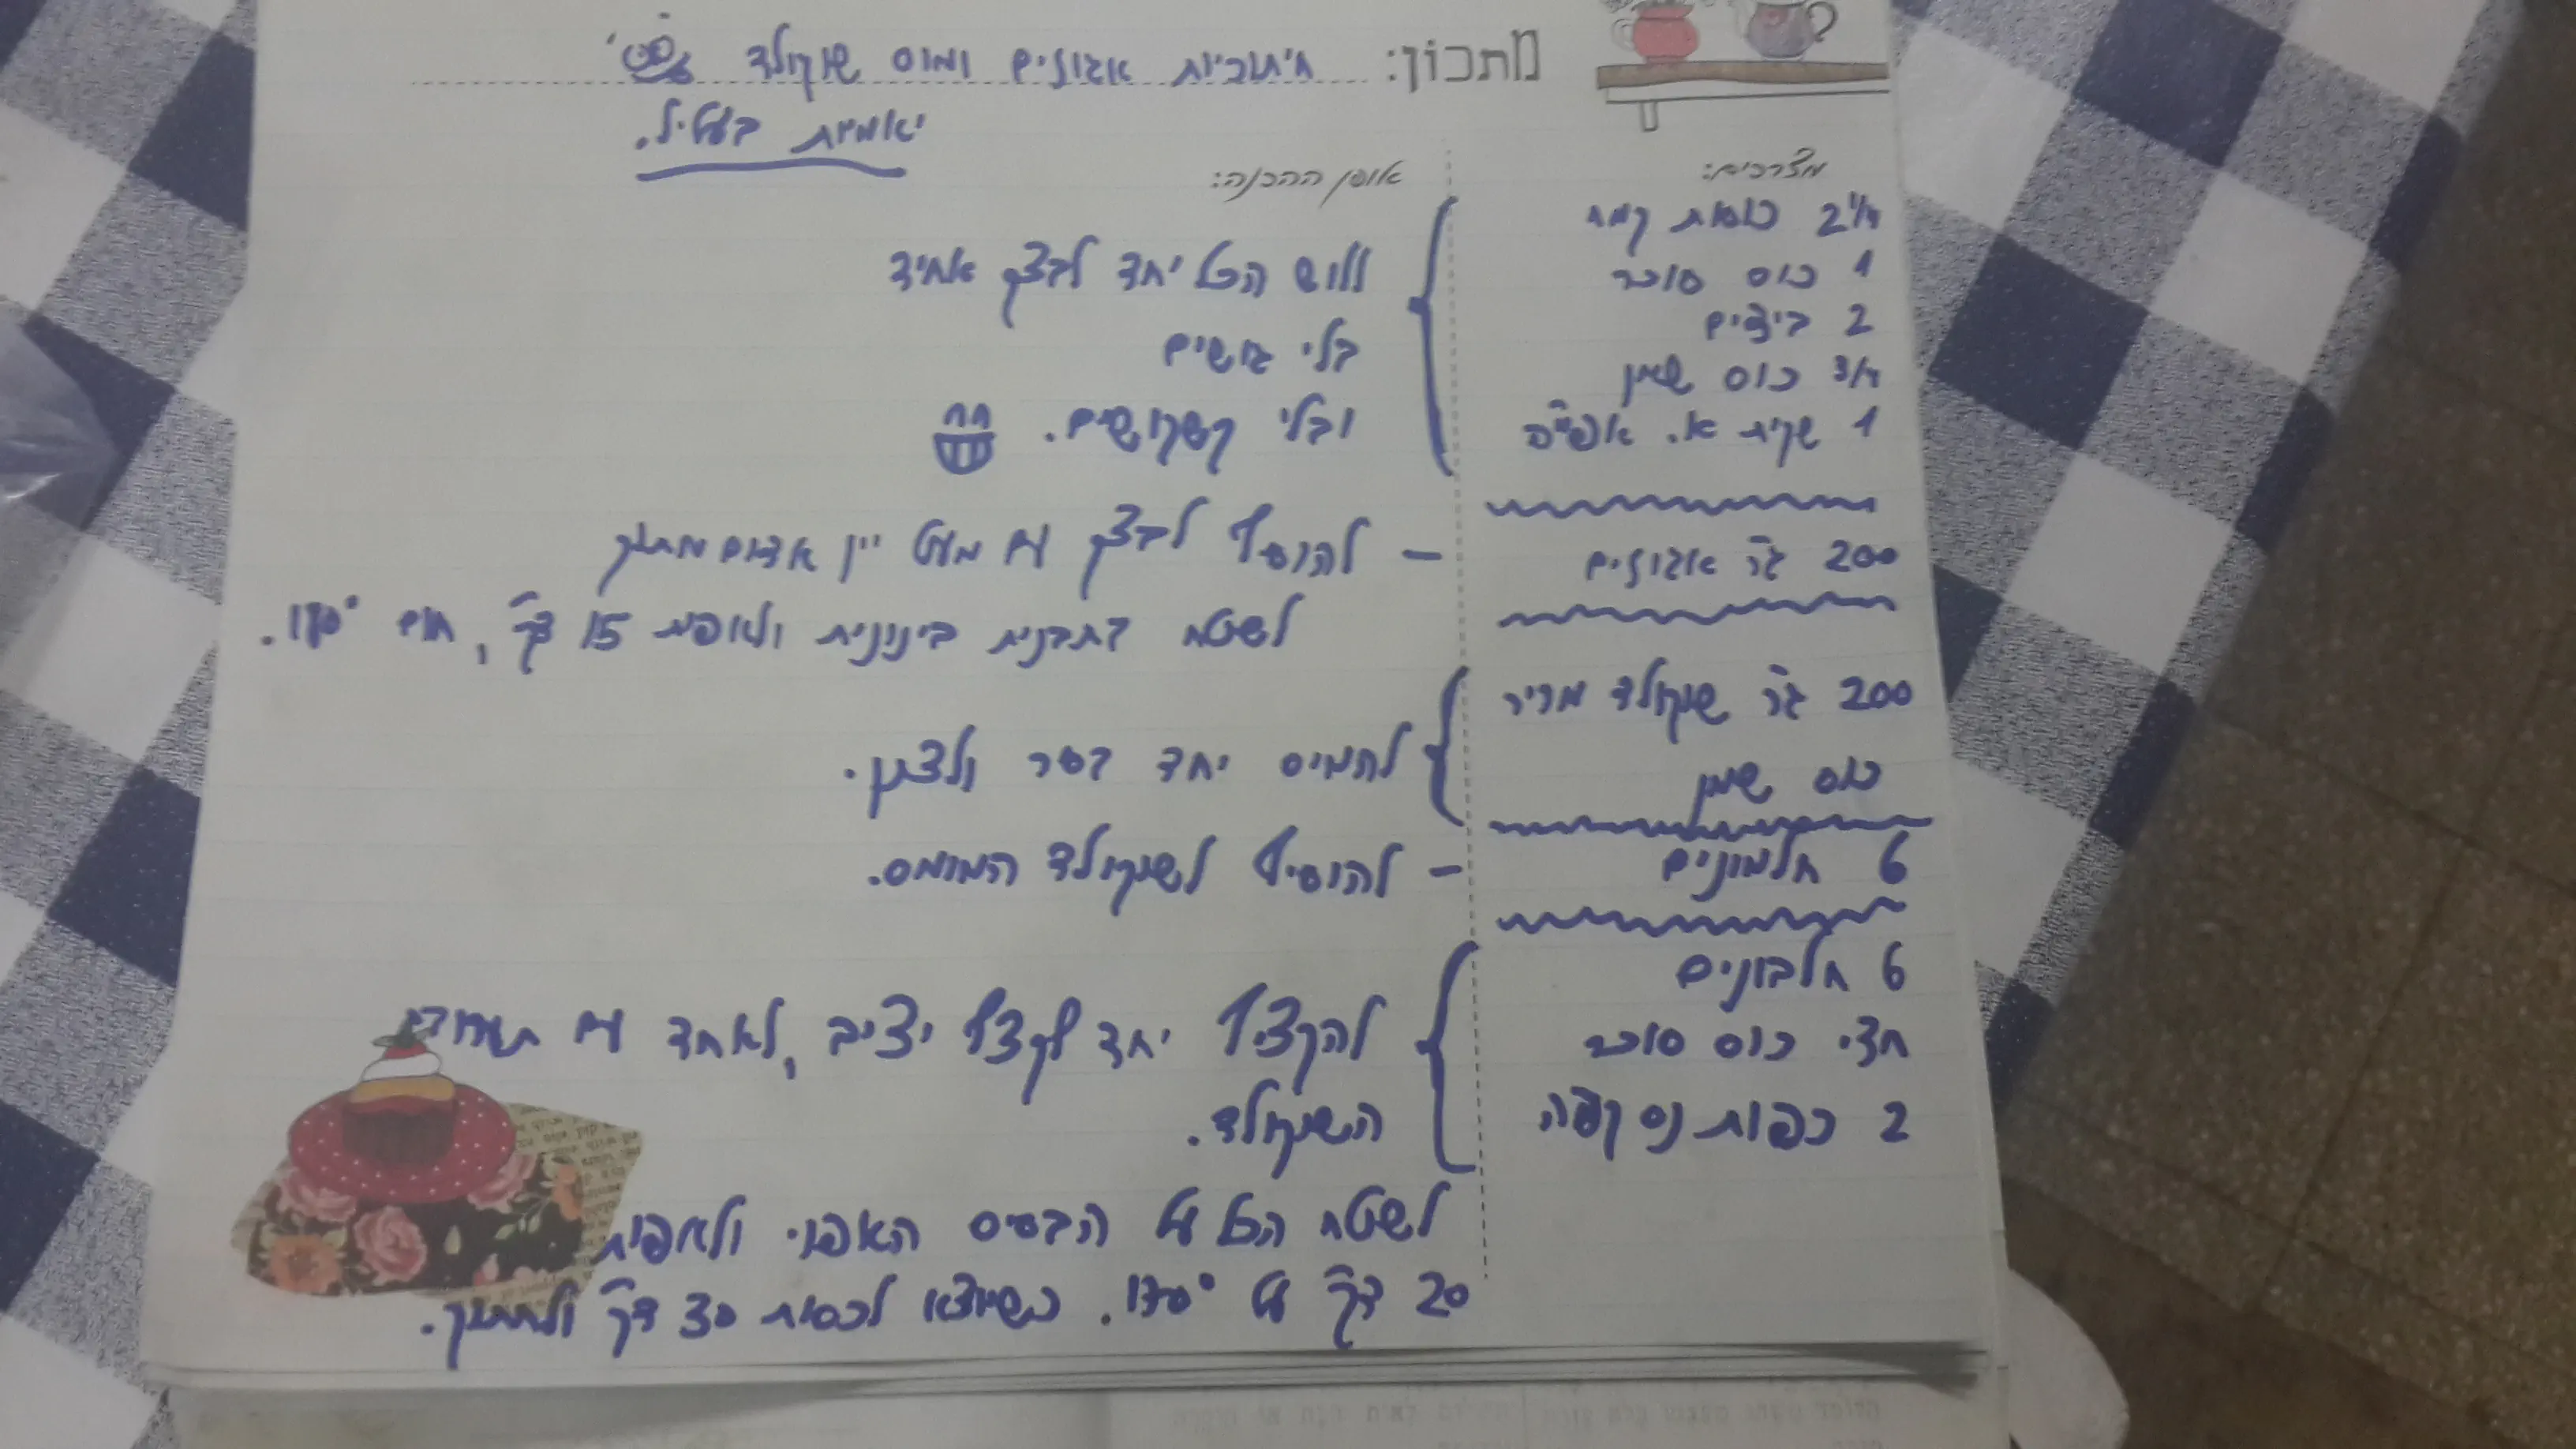 מתכון: חיתוכיות אגוזים ומוס שוקולד
יאמיות בעליל.
מצרכים:
2 1/4 כוסות קמח
1 כוס סוכר
2 ביצים
3/4 כוס שמן
1 שקית א. אפייה
200 גר' אגוזים
200 גר' שוקולד מריר
כוס שמן
6 חלמונים
6 חלבונים
חצי כוס סוכר
2 כפות נס קפה
אופן ההכנה:
ללוש הכל יחד לבצק אחיד
בלי גושים
ובלי קשקושים.
– להוסיף לבצק עם מעט יין אדום מתוק
לשטח בתבנית בינונית ולאפות 15 דק', חום 170°.
להמיס יחד בסיר ולצנן.
– להוסיף לשוקולד המומס.
להקציף יחד לקצף יציב, לאחד עם תערובת
השוקולד.
לשטח הכל על הבסיס האפוי ולאפות
20 דק' על 170°. כשיוצא לכסות 30 דק' ולחתוך.